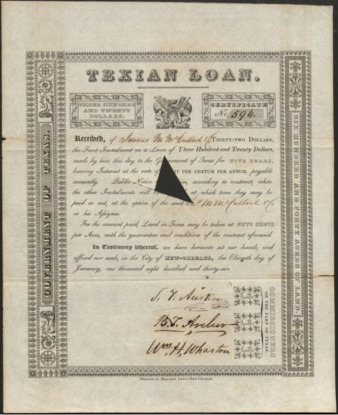 TEXIAN LOAN.
THREE HUNDRED
AND TWENTY
DOLLARS.
CERTIFICATE
No. 594.
GOVERNMENT OF TEXAS.
SIX HUNDRED AND FORTY ACRES OF LAND.
Received, of James THIRTY-TWO DOLLARS,
the First Instalment on a Loan of Three Hundred and Twenty Dollars,
made by him this day to the Government of Texas for FIVE YEARS,
bearing Interest at the rate of PER CENTUM PER ANNUM, payable
annually. Public according to contract, when
the other Instalments will at which time they may be
paid or not, at the option of the said
or his Assigns.
For the amount paid, Land in Texas may be taken at FIFTY CENTS
per Acre, until the guarantee and conditions of the contract aforesaid.
In Testimony whereof, we have hereunto set our hands, and
affixed our seals, in the City of NEW-ORLEANS, this Eleventh day of
January, one thousand eight hundred and thirty-six.
S. F. Austin
B. T. Archer
Wm. H. Wharton
COMMISSIONERS
ON THE PART OF TEXAS